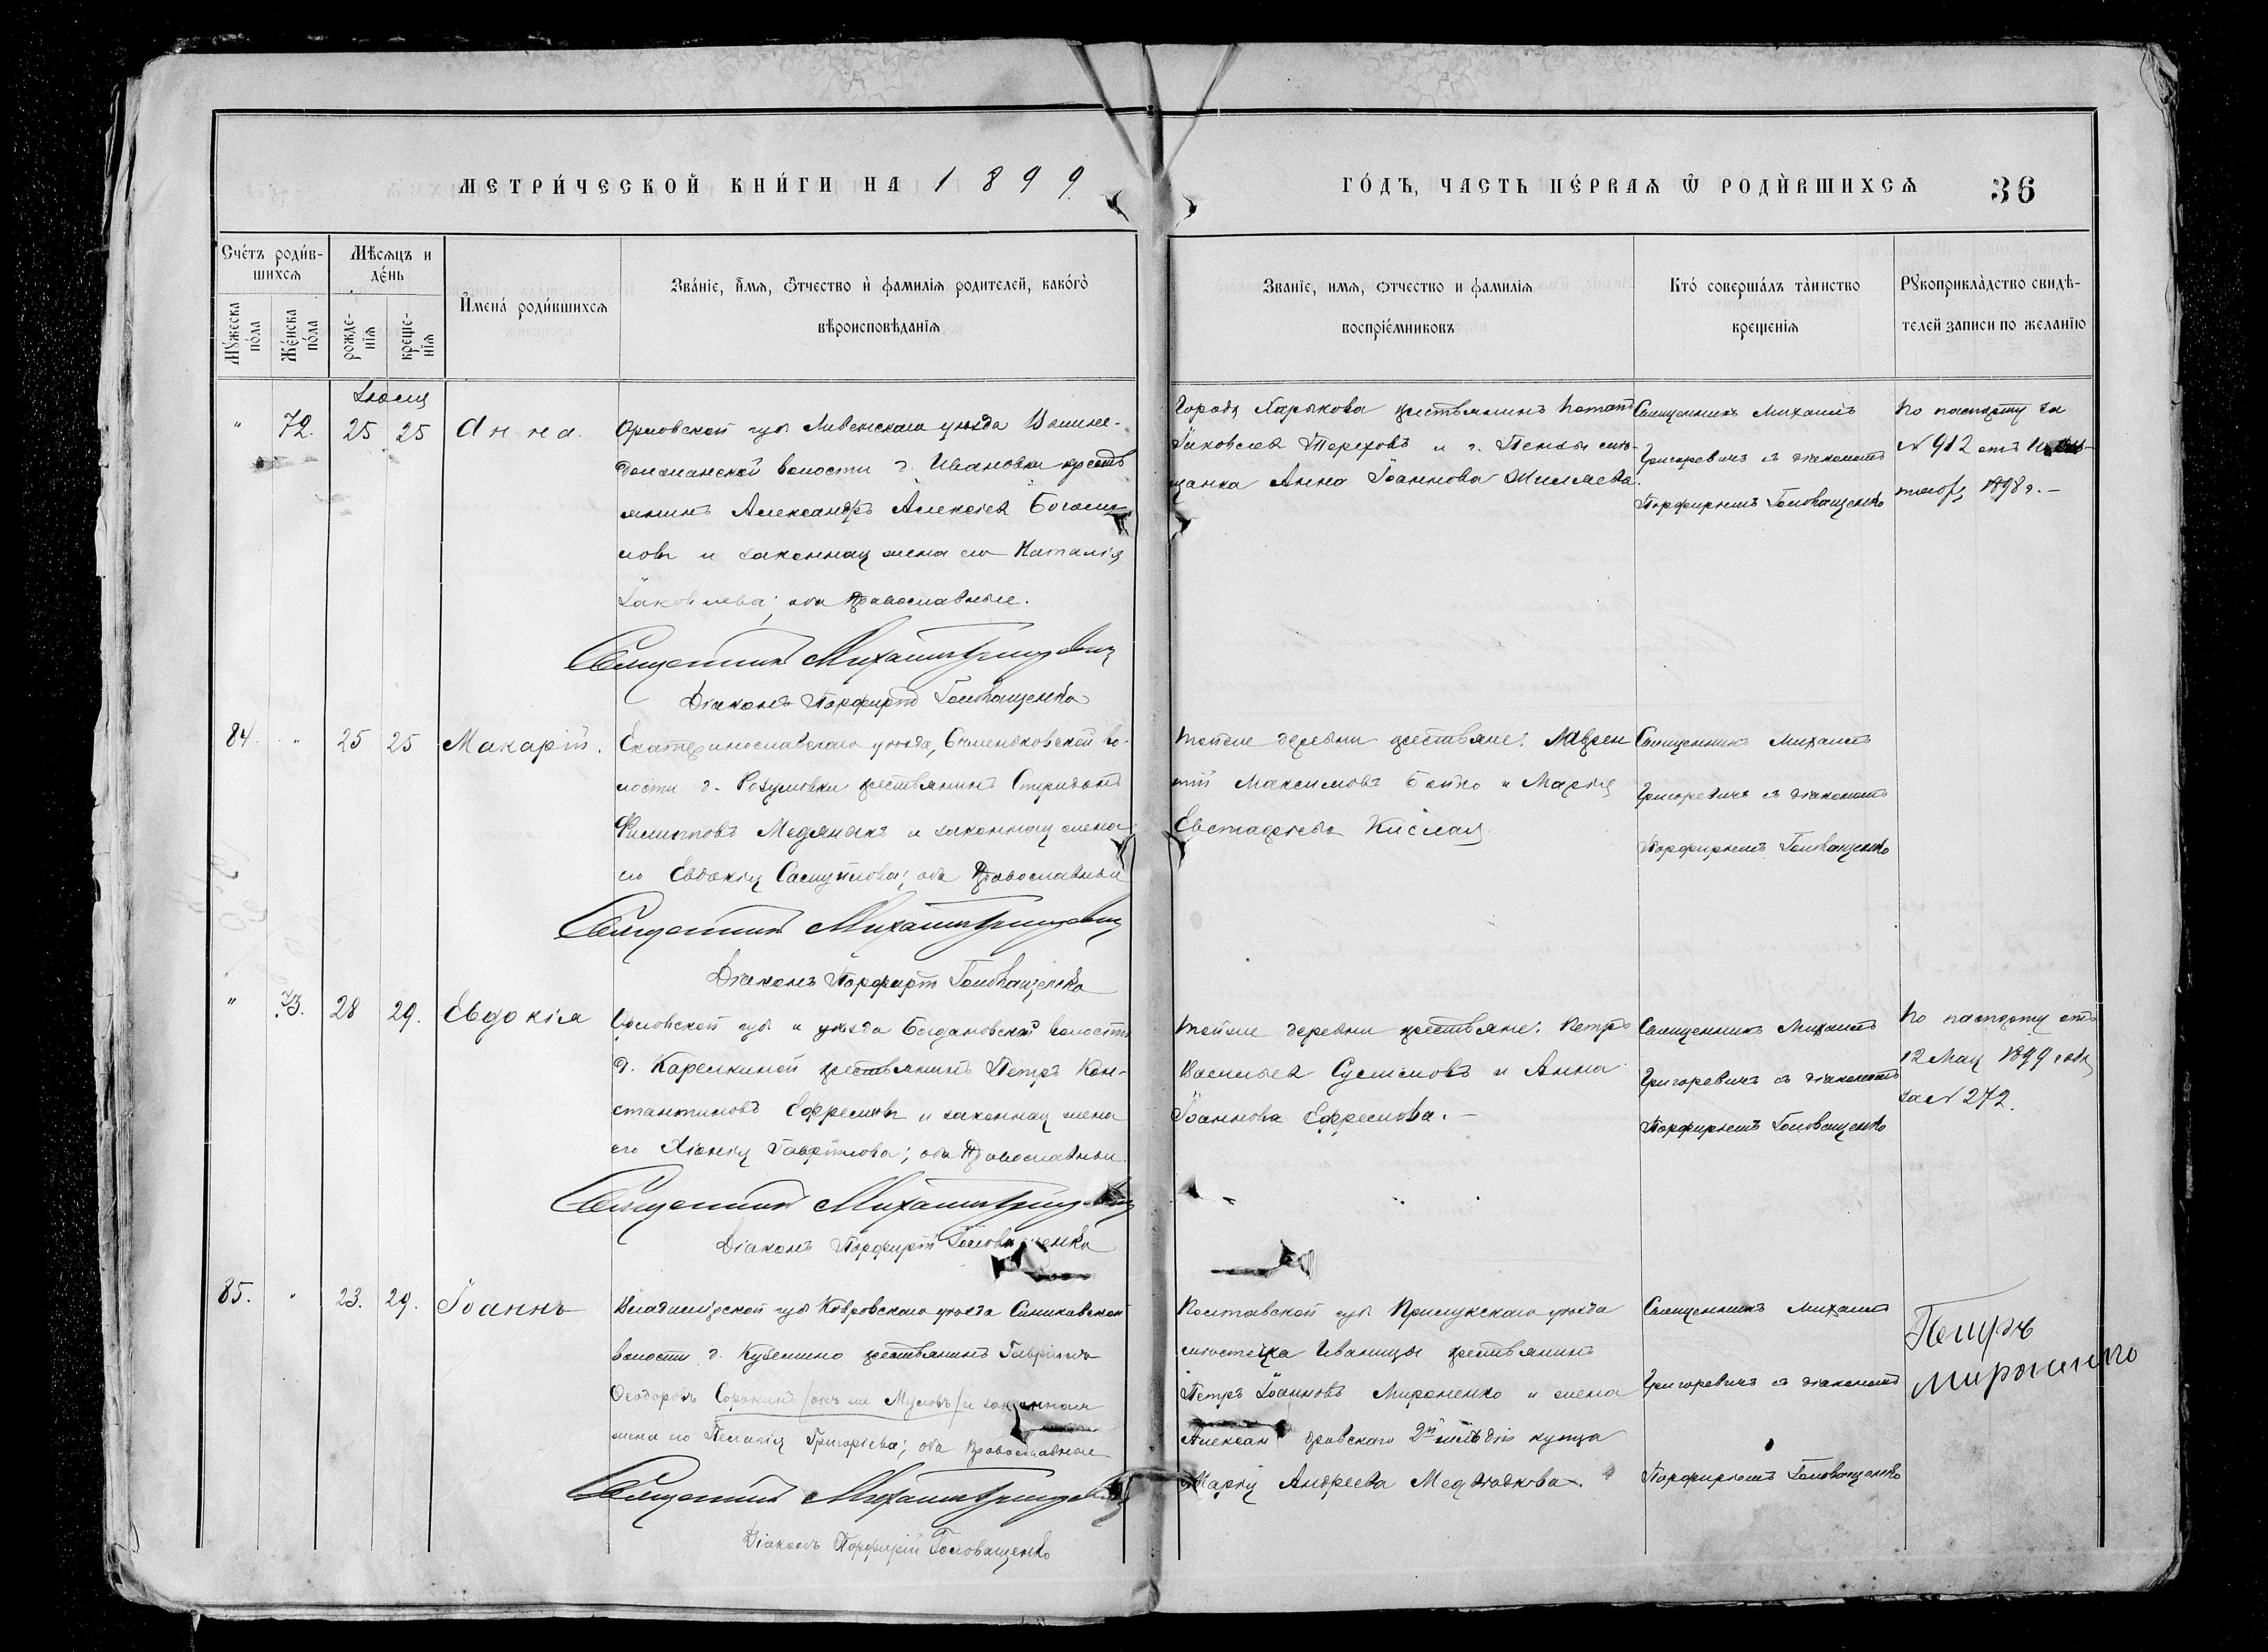 МЕТРИ́ЧЕСКОЙ КНИ́ГИ НА 1899.
ГО́ДЪ, ЧАСТЬ ПЕ́РВАѦ Ѿ РОДИ́ВШИХСѦ 36
Сче́тъ роди́в-
шихсѧ
Мѣсѧцъ и
де́нь
Мꙋ́жеска по́ла
Же́нска по́ла
рожде-
нїѧ
креще-
нїѧ
И҆мена́ роди́вшихсѧ
Зва́нїе, и҆́мѧ, ѻ҆́тчество и҆ фамилїѧ родителей, како́го
вѣроисповѣданїѧ
Званїе, имѧ, ѻтчество и фамилїѧ
воспрїе́мниковъ
Кто́ соверша́лъ та́инство
крещенїѧ
Рꙋкоприкла́дство свидѣ-
телей записи по желанїю
" 72. 25 25 Анна.
Орловской губ. Ливенскаго уѣзда
волости д. Ивановки кресть
янинъ Александръ Алексіевъ
и законная жена его Наталія
Іаковлева; оба Православные.
Священникъ Михаилъ Григоревичъ
Діаконъ Порфирій Головащенко
Города Харькова крестьянинъ
Іаковлевъ Тереховъ и г. Пензы мѣ-
щанка Анна Іоаннова
Священникъ Михаилъ
Григоревичъ съ діакономъ
Порфиріемъ Головащенко
По паспорту за
№ 912 отъ
1898 г. –
84. " 25 25 Макарій.
Екатеринославскаго уѣзда, во-
лости д. Розумовки крестьянинъ Спиридонъ
Филипповъ Медяникъ и законная жена
его Евдокія Самуилова; оба Православные
Священникъ Михаилъ Григоревичъ
Діаконъ Порфирій Головащенко
тойже деревни крестьяне: Лаврен
тій Максимовъ Бойко и Марія
Евстафіева Кислая.
Священникъ Михаилъ
Григоревичъ съ діакономъ
Порфиріемъ Головащенко
" 73. 28 29. Евдокія
Орловской губ. и уѣзда Богдановской волости
д. Карелкиной крестьянинъ Петръ Кон-
стантиновъ Ефремовъ и законная жена
его Хіонія Гавріилова; оба Православные.
Священникъ Михаилъ Григоревичъ
Діаконъ Порфирій Головащенко
тойже деревни крестьяне: Петръ
Васильевъ и Анна
Іоаннова Ефремова. –
Священникъ Михаилъ
Григоревичъ съ діакономъ
Порфиріемъ Головащенко
По паспорту отъ
12 Мая 1899 года
за № 272.
85. " 23. 29. Іоаннъ
Владимірской губ. Ковровскаго уѣзда
волости д. крестьянинъ Гавріилъ
Ѳеодоровъ Сорокинъ /онъ же / и законная
жена его Пелагія Григоріева; оба Православные
Священникъ Михаилъ Григоревичъ
Діаконъ Порфирій Головащенко
Полтавской губ. Прилукскаго уѣзда
мѣстечка Иваницы крестьянинъ
Петръ Іоанновъ Мироненко и жена
Александровскаго 2й гильдіи купца
Марія Андреева Медвѣдкова.
Священникъ Михаилъ
Григоревичъ съ діакономъ
Порфиріемъ Головащенко
Петръ
Мироненко